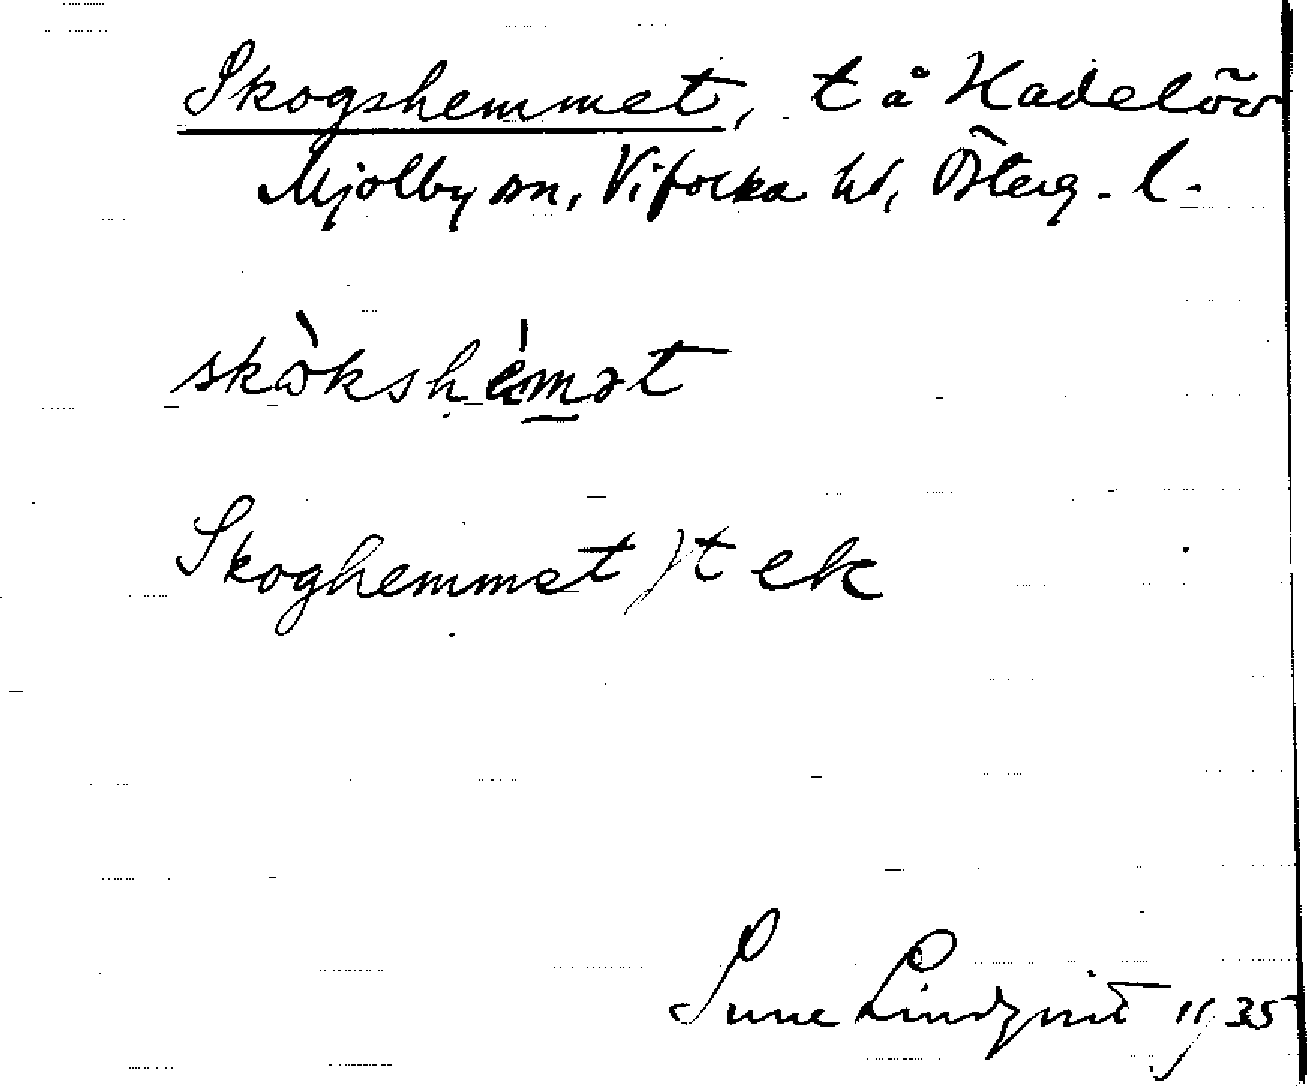 Skogshemmet, t å Hadelöv
Mjölby sn, Vifolka hd, Österg. l.
skòkshèmət
Skoghemmet) t ek
Sune Lindqvist 1935